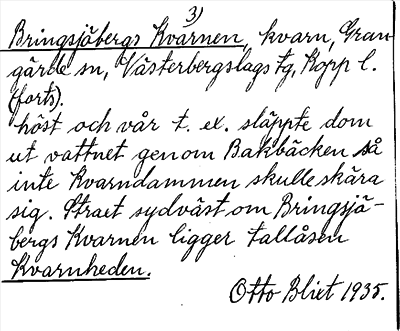 3)
Bringsjöbergs Kvarnen, kvarn, Gran-
gärde sn, Västerbergslags tg, Kopp l.
(forts).
höst och vår t. ex. släppte dom
ut vattnet genom Bakbäcken så
inte Kvarndammen skulle skära
sig. Straxt sydväst om Bringsjö-
bergs Kvarnen ligger tallåsen
Kvarnheden.
Otto Blixt 1935.